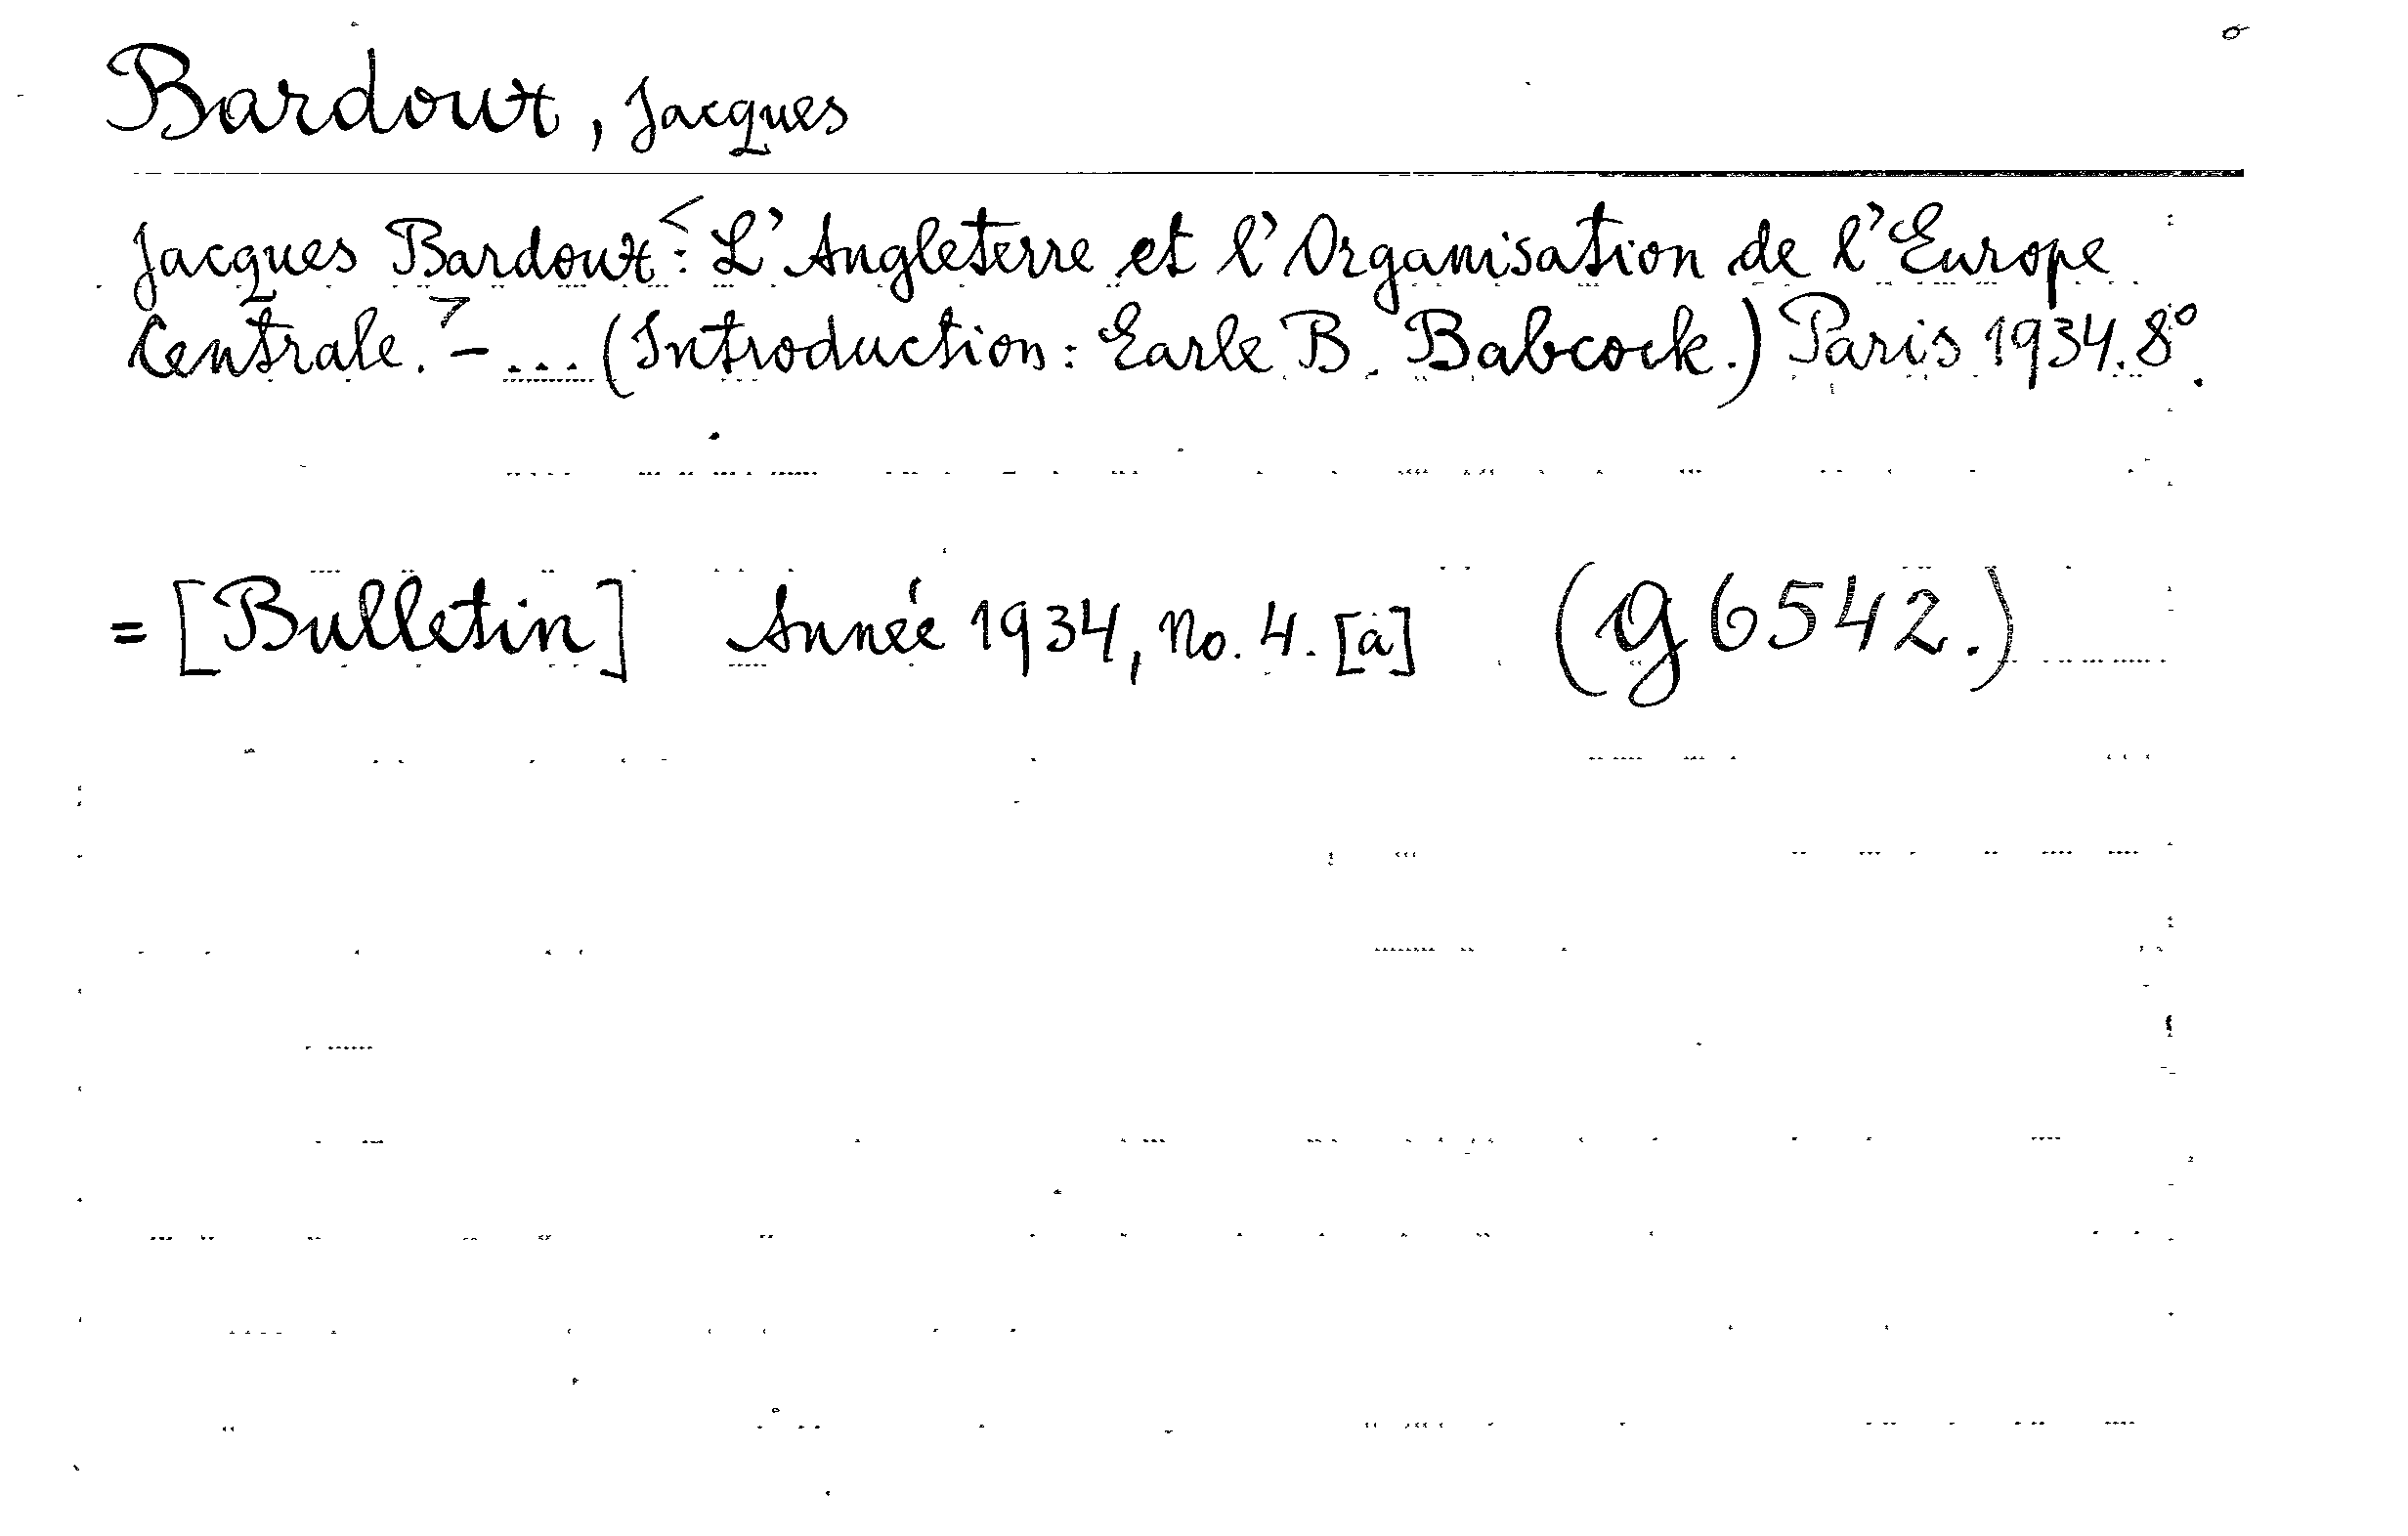 Bardoux, Jacques
Jacques Bardoux: < L'Angleterre et l'Organisation de l'Europe
Centrale. > - ... (Introduction: Earle B. Babcock.) Paris 1934. 8°.
= [Bulletin] Année 1934, No. 4. [a] (g 6542.)